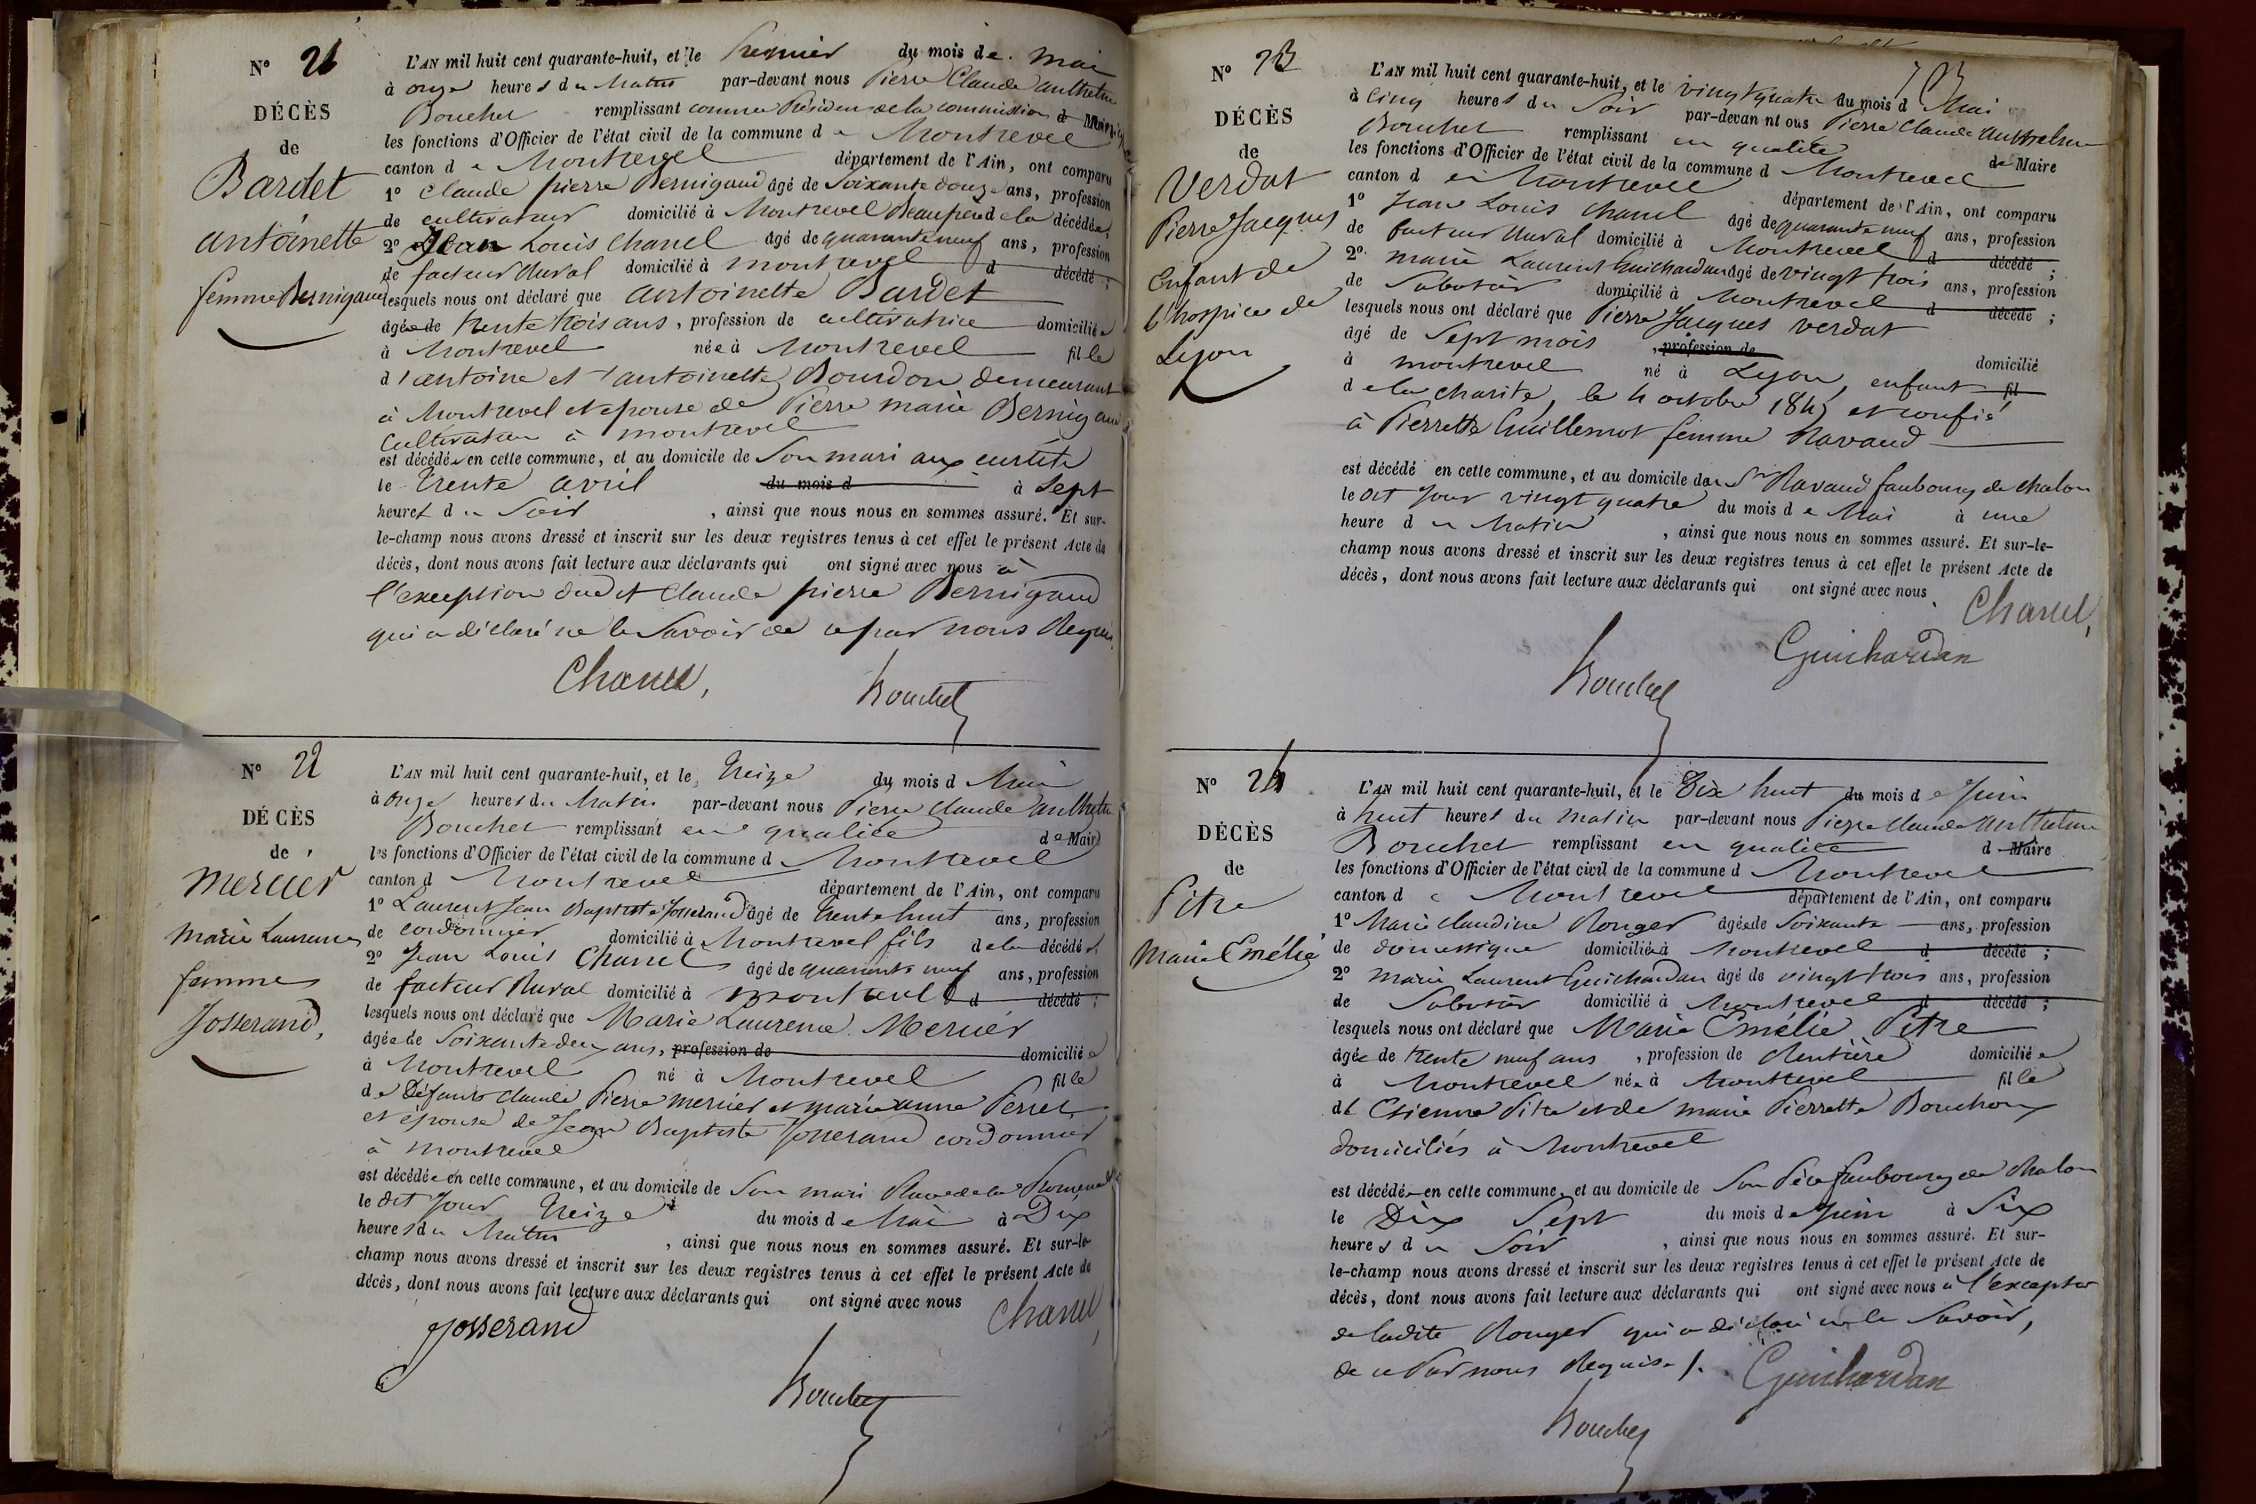 N° 21
DÉCÈS
de
Bardet
antoinette
femme Bernigaud
L'AN mil huit cent quarante-huit, et le premier du mois de mai
à onze heures du Matin par-devant nous Pierre Claude Anthelme
Bouchet remplissant comme Président de la commission d Mairie
les fonctions d'Officier de l'état civil de la commune de Montrevel
canton de Montrevel département de l'Ain, ont comparu
1° Claude pierre Bernigaud âgé de Soixante douze ans, profession
de cultivateur domicilié à Montrevel Beaupère de la décédée;
2° Jean Louis Chanel âgé de quarante neuf ans, profession
de facteur Rural domicilié à montrevel d décédé;
lesquels nous ont déclaré que antoinette Bardet
âgée de trente trois ans, profession de cultivatrice domiciliée
à Montrevel née à Montrevel fille
d'antoine et d'antoinette Bourdon demeurant
à Montrevel et epouse de Pierre marie Bernigaud
Cultivateur à montrevel
est décédée en cette commune, et au domicile de Son mari aux curtits
le trente avril du mois d à Sept
heures du Soir, ainsi que nous nous en sommes assuré. Et sur-
le-champ nous avons dressé et inscrit sur les deux registres tenus à cet effet le présent Acte de
décès, dont nous avons fait lecture aux déclarants qui ont signé avec nous à
l'exception dudit Claude pierre Bernigaud
qui a déclaré ne le Savoir de ce par nous Requis.
Chanel,
Bouchet
N° 22
DÉCÈS
de
Mercier
Marie Laurence
femme
Josserand,
L'AN mil huit cent quarante-huit, et le treize du mois d Mai
à onze heures du Matin par-devant nous Pierre Claude Anthelme
Bouchet remplissant en qualité de Maire
les fonctions d'Officier de l'état civil de la commune d Montrevel
canton d Montrevel département de l'Ain, ont comparu
1° Laurent Jean Baptiste Josserand âgé de trente huit ans, profession
de cordonnier domicilié à Montrevel fils de la décédée;
2° Jean Louis Chanel âgé de quarante neuf ans, profession
de facteur Rural domicilié à montrevel d décédé;
lesquels nous ont déclaré que Marie Laurence Mercier
âgée de Soixante deux ans, profession de domiciliée
à Montrevel né à Montrevel fille
de Défunts Claude Pierre mercier et marie anne Perret
et épouse de Jean Baptiste Josserand cordonnier
à montrevel
est décédée en cette commune, et au domicile de Son mari Place de la Promenade
le dit Jour treize du mois de Mai à Dix
heures du Matin, ainsi que nous nous en sommes assuré. Et sur-le-
champ nous avons dressé et inscrit sur les deux registres tenus à cet effet le présent Acte de
décès, dont nous avons fait lecture aux déclarants qui ont signé avec nous
Josserand
Chanel,
Bouchet
N° 23
DÉCÈS
de
Verdat
Pierre Jacques
Enfant de
l'hospice de
Lyon
L'AN mil huit cent quarante-huit, et le vingt quatre du mois d Mai
à Cinq heures du Soir par-devant nous Pierre Claude Anthelme
Bouchet remplissant en qualité de Maire
les fonctions d'Officier de l'état civil de la commune d Montrevel
canton de Montrevel département de l'Ain, ont comparu
1° Jean Louis Chanel âgé de quarante neuf ans, profession
de facteur Rural domicilié à Montrevel d décédé;
2° marie Laurent Guichardan âgé de vingt trois ans, profession
de Sabotier domicilié à Montrevel d décédé;
lesquels nous ont déclaré que Pierre Jacques Verdat
âgé de Sept mois, profession de domicilié
à montrevel né à Lyon, enfant fil
de la charité, le 4 octobre 1847 et confié
à Pierrette Guillemot femme Ravaud
est décédé en cette commune, et au domicile du Sr Ravaud faubourg de chalon
le dit Jour vingt quatre du mois de Mai à une
heure du Matin, ainsi que nous nous en sommes assuré. Et sur-le-
champ nous avons dressé et inscrit sur les deux registres tenus à cet effet le présent Acte de
décès, dont nous avons fait lecture aux déclarants qui ont signé avec nous.
Chanel,
Guichardan
Bouchet
N° 24
DÉCÈS
de
Pitre
Marie Emélie
L'AN mil huit cent quarante-huit, et le Dix huit du mois de Juin
à huit heures du Matin par-devant nous Pierre Claude Anthelme
Bouchet remplissant en qualité d Maire
les fonctions d'Officier de l'état civil de la commune d Montrevel
canton de Montrevel département de l'Ain, ont comparu
1° Marie Claudine Rouger âgée de Soixante ans, profession
de domestique domiciliée à Montrevel d décédé;
2° marie Laurent Guichardan âgé de vingt trois ans, profession
de Sabotier domicilié à Montrevel d décédé;
lesquels nous ont déclaré que Marie Emélie Pitre
âgée de trente neuf ans, profession de Rentière domiciliée
à Montrevel née à Montrevel fille
d'Etienne Pitre et de marie Pierrette Bouchoux
domiciliés à Montrevel
est décédée en cette commune, et au domicile de Son Père faubourg de Chalon
le Dix Sept du mois de Juin à Six
heures du Soir, ainsi que nous nous en sommes assuré. Et sur-
le-champ nous avons dressé et inscrit sur les deux registres tenus à cet effet le présent Acte de
décès, dont nous avons fait lecture aux déclarants qui ont signé avec nous à l'exception
de ladite Rouger qui a déclaré ne le Savoir,
de ce Par nous Requise /.
Guichardan
Bouchet